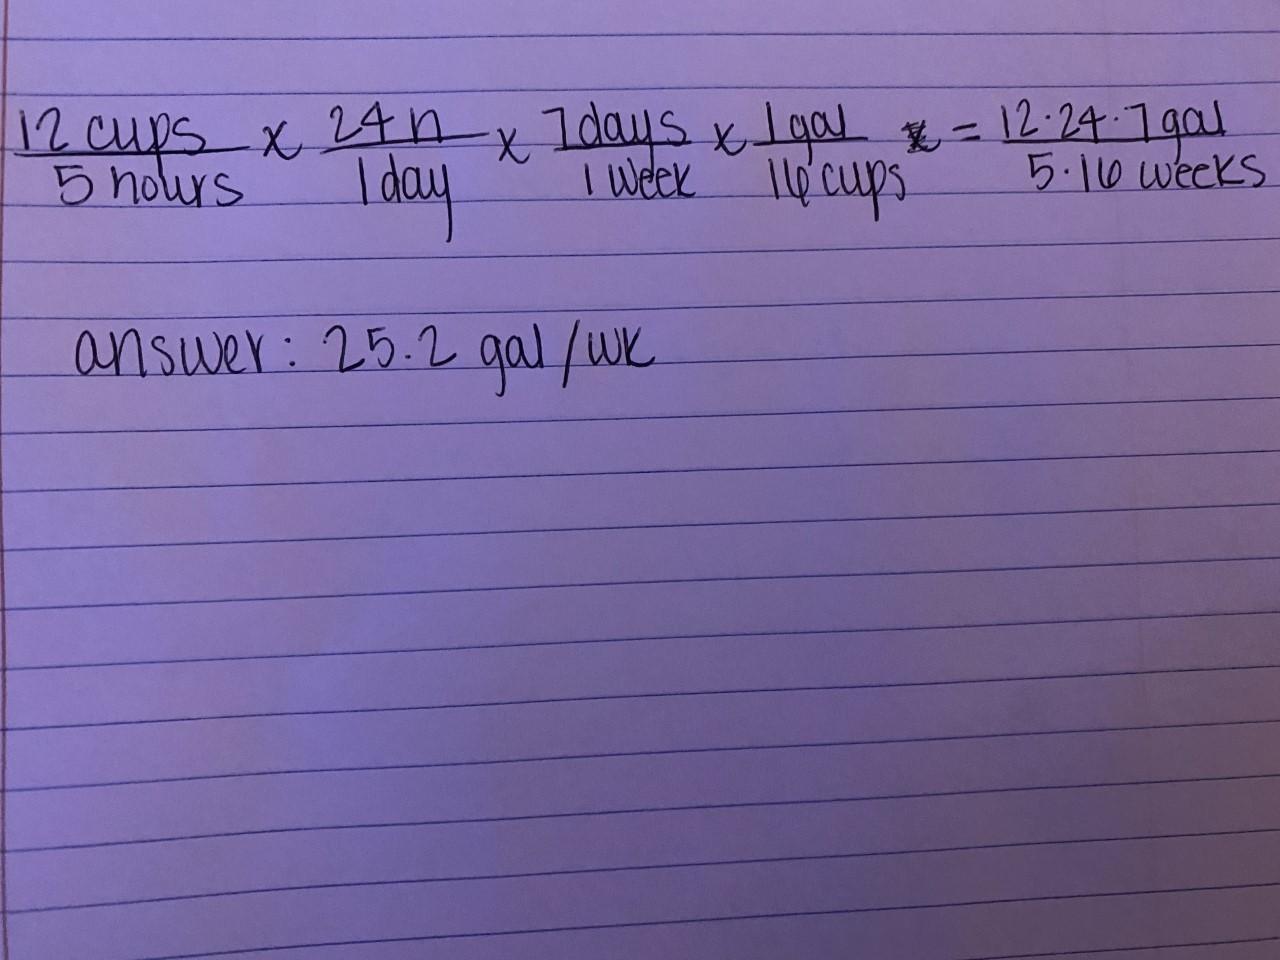 12 cups / 5 hours x 24 h / 1 day x 7 days / 1 week x 1 gal / 16 cups = 12·24·7 gal / 5·16 weeks
answer: 25.2 gal/wk